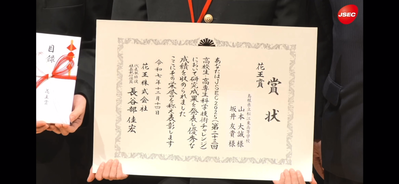 JSEC
目録
花王賞
賞状
山本大誠様
坂井友貴様
あなたはJSEC2025(第二十三回
高校生・高専生科学技術チャレンジ)
において研究成果を発表し優秀な
成績を収められました
ここにその栄誉を称え表彰します
令和七年十二月十四日
花王株式会社
長谷部佳宏